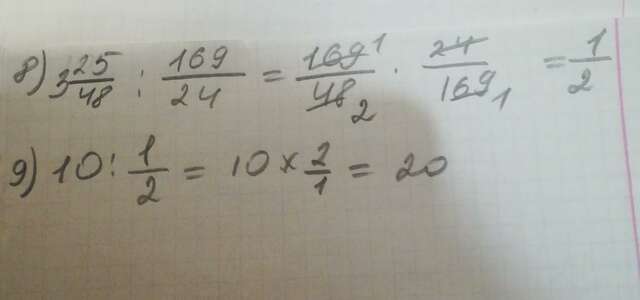 8) 3 25/48 : 169/24 = 169 1/48 2 · 24/169 1 = 1/2
9) 10 : 1/2 = 10 × 2/1 = 20